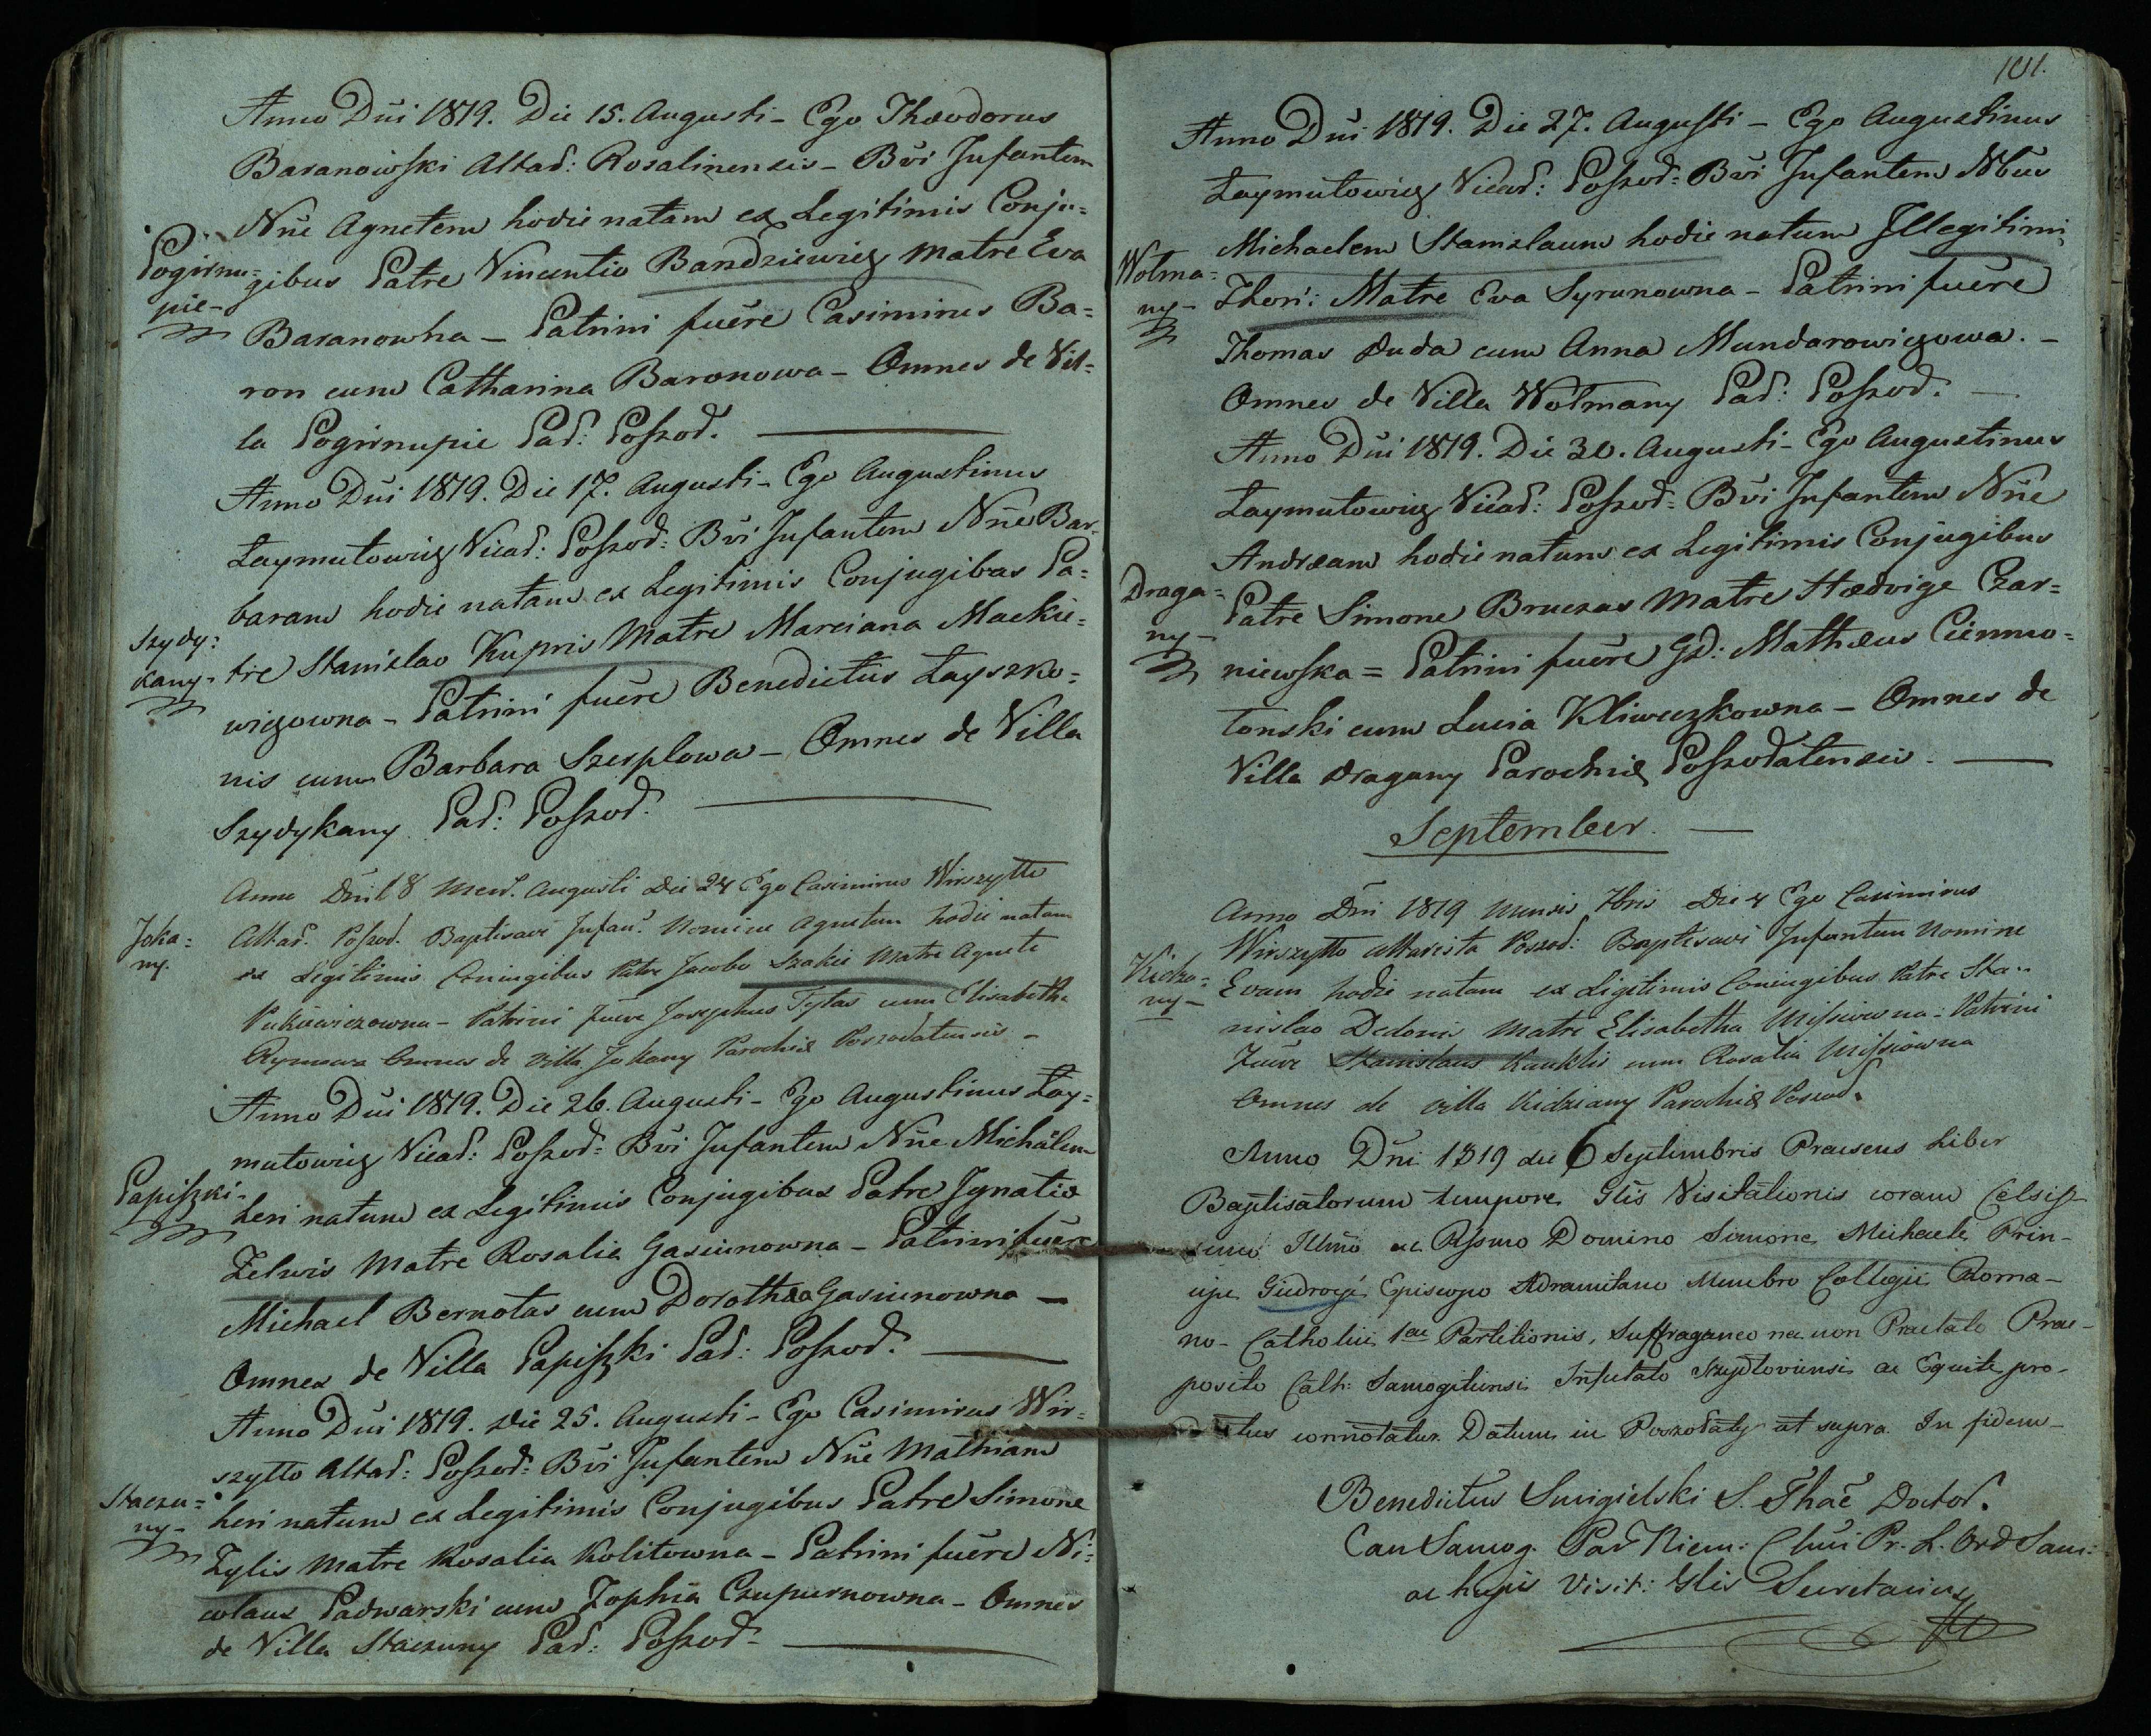 Anno Dni 1819. Die 15. Augusti - Ego Theodorus
Baranowski Altar: Rosalinensis - Bvi Infantem
Nne Agnetem hodie natam ex Legitimis Conju=
Pogirnu=
pie-
gibus Patre Vincentio Bandziewicz Matre Eva
Baranowna - Patrini fuere Casimirus Ba=
ron cum Catharina Baronowa - Omnes de Vil=
la Pogirnupie Par: Poszod.
Anno Dni 1819. Die 17. Augusti - Ego Augustinus
Laymutowicz Vicar: Poszod: Bvi Infantem Nne Bar=
baram hodie natam ex Legitimis Conjugibus Pa=
Szydy:
kany-
tre Stanislao Kupris Matre Marciana Mackie=
wiczowna - Patrini fuere Benedictus Layszko=
nis cum Barbara Szesplowa - Omnes de Villa
Szydykany Par: Poszod.
Anno Dni 18 Mens. Augusti Die 24 Ego Casimirus Wirszytto
Joka=
ny.
Altar. Poszod. Baptisavi Infan. Nomine Agnetem hodie natam
ex Legitimis Coniugibus Patre Jacobo Szakii Matre Agnete
Pukiewiczowna - Patrini fuere Josephus Tytas cum Elisabetha
Rymowa Omnes de Villa Jokany Parochiæ Poszodatensis -
Anno Dni 1819. Die 26. Augusti - Ego Augustinus Lay=
mutowicz Vicar: Poszod: Bvi Infantem Nne Michälem
Papiszki-
heri natum ex Legitimis Conjugibus Patre Ignatio
Zelwis Matre Rosalia Gasiunowna - Patrini fuere
Michael Bernotas cum Dorothea Gasiunowna -
Omnes de Villa Papiszki Par: Poszod.
Anno Dni 1819. Die 25. Augusti - Ego Casimirus Wir=
szytto Altar: Poszod: Bvi Infantem Nne Mathiam
Staczu=
ny-
heri natum ex Legitimis Conjugibus Patre Simone
Zylis Matre Rosalia Kolitowna - Patrini fuere Ni=
colaus Padwarski cum Zophia Czupurnowna - Omnes
de Villa Staczuny Par: Poszod-
101.
Anno Dni 1819. Die 27. Augusti - Ego Augustinus
Laymutowicz Vicar: Poszod: Bvi Infantem Nbus
Michaelem Stanislaum hodie natum Illegitimi
Wolma=
ny-
Thori: Matre Eva Syrunowna - Patrini fuere
Thomas Duda cum Anna Mundarowiczowa. -
Omnes de Villa Wolmany Par: Poszod.
Anno Dni 1819. Die 30. Augusti - Ego Augustinus
Laymutowicz Vicar: Poszod: Bvi Infantem Nne
Andream hodie natum ex Legitimis Conjugibus
Draga=
ny-
Patre Simone Bruczas Matre Hedvige Czar=
niewska = Patrini fuere Gd: Mathæus Ciemno=
tonski cum Lucia Kliweczkowna - Omnes de
Villa Dragany Parochiæ Poszodatensis.
September.
Anno Dni 1819 Mensis 7bris Die 4 Ego Casimirus
Wirszytto Altarista Poszod: Baptisavi Infantem Nomine
Kidzia=
ny-
Evam hodie natam ex Legitimis Coniugibus Patre Sta=
nislao Dedonis Matre Elisabetha Missiowna: Patrini
Fuere Stanislaus Kunklis cum Rosalia Missiowna
Omnes de Villa Kidziany Parochiæ Poszod.
Anno Dni 1819 die 6 Septembris Praesens Liber
Baptisatorum tempore Glis Visitationis coram Celsiss
imo Illmo ac Rssmo Domino Simone Michaele Prin-
cipe Giedroyć Episcopo Adramitano Membro Collegii Roma-
no-Catholici 1ae Partitionis, Suffraganeo nec non Praelato Prae-
posito Cath: Samogitiensi Infulato Szydloviensi ac Equite pro-
ductus connotatur. Datum in Poszodaty ut supra. In fidem-
Benedictus Smigielski S. Thae Doctor.
Can Samog. Par Niem: Clmi Pr. L. Ord Sam:
ac hujus Visit: Glis Secretarius